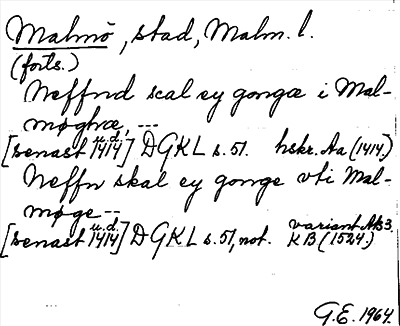 Malmö, stad, Malm. l.
(forts.)
Neffnd scal ey gongæ i Mal-
møghæ, ---
[senast u.d. 1414] DGKL s. 51. hskr. Aa (1414.)
Neffn skal ey gonge vti Mal-
møge --
[senast u.d. 1414] DGKL s. 51, not. variant Ab3. KB (1524.)
G.E. 1964.